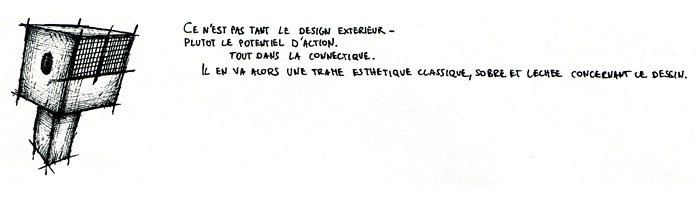 CE N'EST PAS TANT LE DESIGN EXTERIEUR -
PLUTOT LE POTENTIEL D'ACTION.
TOUT DANS LA CONNECTIQUE.
IL EN VA ALORS UNE TRAME ESTHETIQUE CLASSIQUE, SOBRE ET LECHEE CONCERNANT LE DESSIN.